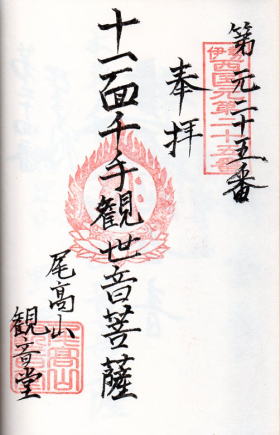 第元二十五番
伊勢
西国元第二十五番
奉拝
十一面千手観世音菩薩
尾高山
観音堂